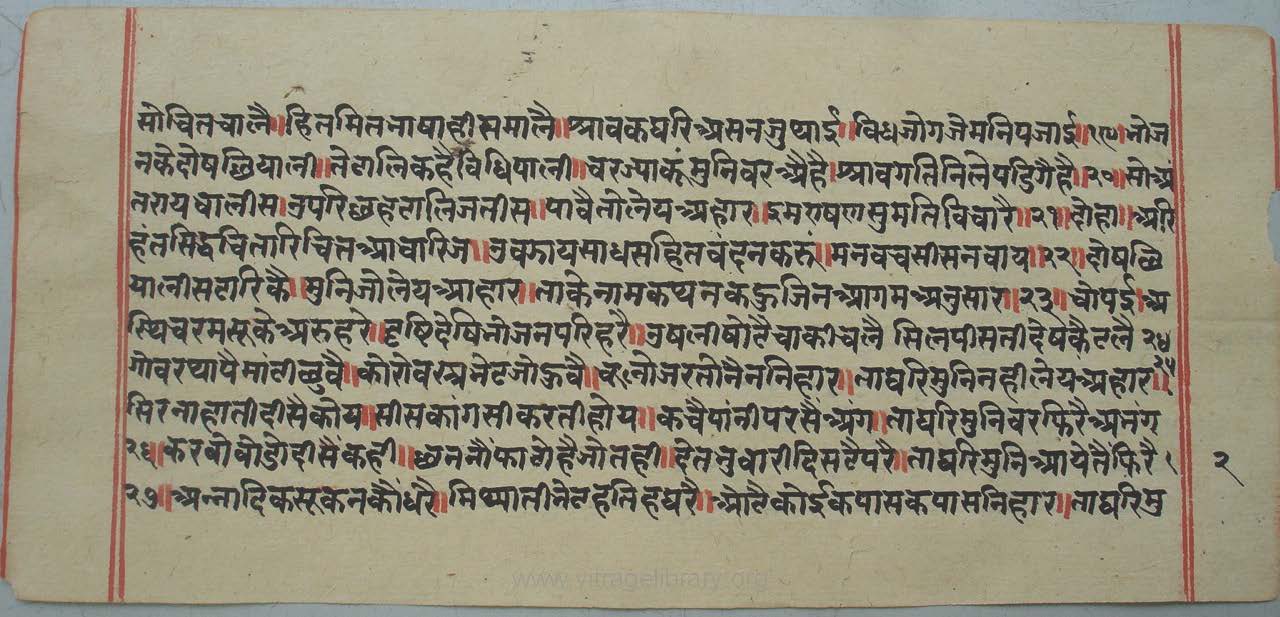 सोचितचालै॥हितमितभाषाहीसमालै॥श्रावकघरिअसनजुथाई॥विधजोगजेमनिपजाई॥१९॥भोज
नकेदोषछियाली॥तेटालिकहैविधिपाली॥चरज्याकूंमुनिवरअैहै।श्रावगतिनिलेपडिगैहै॥२०॥सोअं
तरायबालीस॥उपरिछहटालिजतीस॥पावैतोलेयअहार॥इमरुषणसुमतिविचारै॥२१॥दोहा॥अरि
हंतसिद्धचितारिचितआचारिज॥उवझायसाधसहितवंदनकरुं॥मनवचसीसनवाय॥२२॥दोषछि
यालीसटारिकै॥मुनिजोलेयआहार॥ताकेनामकथनकछुजिनआगमअनुसार॥२३॥चोपई॥अ
स्थिचरमसूकेअरुहरे॥द्दष्टिदेषिभोजनपरिहरै॥उषलीषोटैचाकीचलै सिलपीसतीदेषकैटलै २४
गोवरथापैमांटीछुवै॥कोरोवस्त्रभेटजोहुवै॥२५भोजरतोनैननिहार॥ताघरिमुनिनहीलेयअहार॥२५
सिरनाहातीदीसैकोय॥सीसकांगसीकरतीहोय॥कचैपांनीपरसैंअग॥ताघरिमुनिवरफिरैअभग
२६॥करबोबोडोदीसैकही॥छाननौंफाटोहैजोतही॥देतबुवारीदिसटैपरै॥ताघरिमुनिआयेतैंफिरै १
२७॥अन्नादिकसूकनकौंधरै॥मिथ्यातीभेटहेतिहघरै॥ओटैकोईकपासकपासनिहार॥ताघरिमु
२
www.vitragelibrary.org